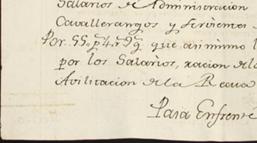 Salarios de Administracion
Cavallerangos y Sirvientes
Por 55,, p.s 4,, r.s 9 g.s que an inimo l
por los Salarios, racion de la
Avilitacion de la Reaua
Para Enfrente